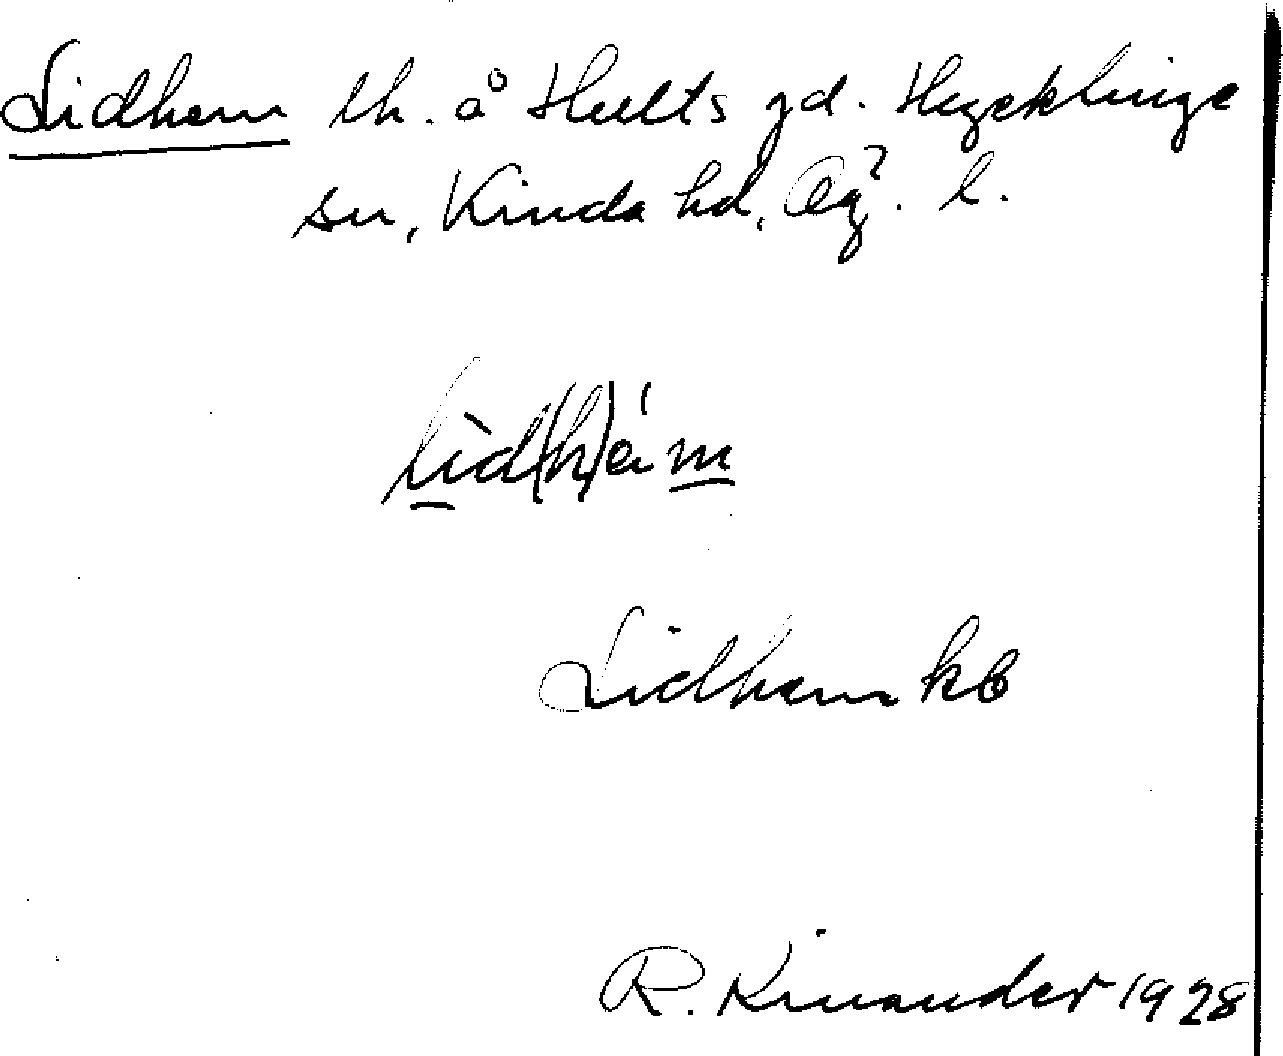 Lidhem lh. å Hults gd. Hycklinge
sn, Kinda hd, Ög. l.
lid(h)äm
Lidhem kb
R. Kinander 1928